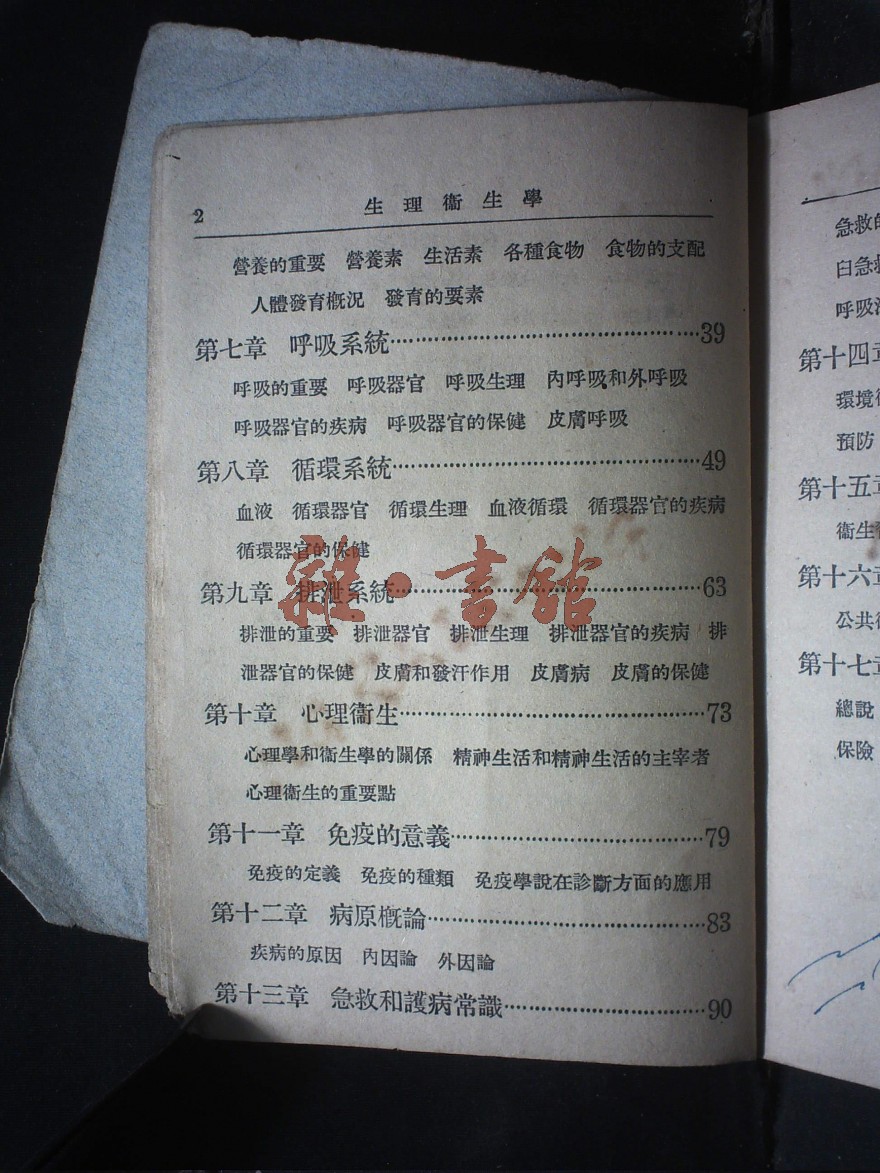 2
生理衞生學
營養的重要　營養素　生活素　各種食物　食物的支配
人體發育槪況　發育的要素
第七章　呼吸系統……39
呼吸的重要　呼吸器官　呼吸生理　內呼吸和外呼吸
呼吸器官的疾病　呼吸器官的保健　皮膚呼吸
第八章　循環系統……49
血液　循環器官　循環生理　血液循環　循環器官的疾病
循環器官的保健
第九章　排泄系統……63
排泄的重要　排泄器官　排泄生理　排泄器官的疾病　排
泄器官的保健　皮膚和發汗作用　皮膚病　皮膚的保健
第十章　心理衞生……73
心理學和衞生學的關係　精神生活和精神生活的主宰者
心理衞生的重要點
第十一章　免疫的意義……79
免疫的定義　免疫的種類　免疫學說在診斷方面的應用
第十二章　病原槪論……83
疾病的原因　內因論　外因論
第十三章　急救和護病常識……90
雜·書館
急救的
臼急救
呼吸
第十四章
環境
預防
第十五章
衞生
第十六章
公共
第十七章
總說
保險